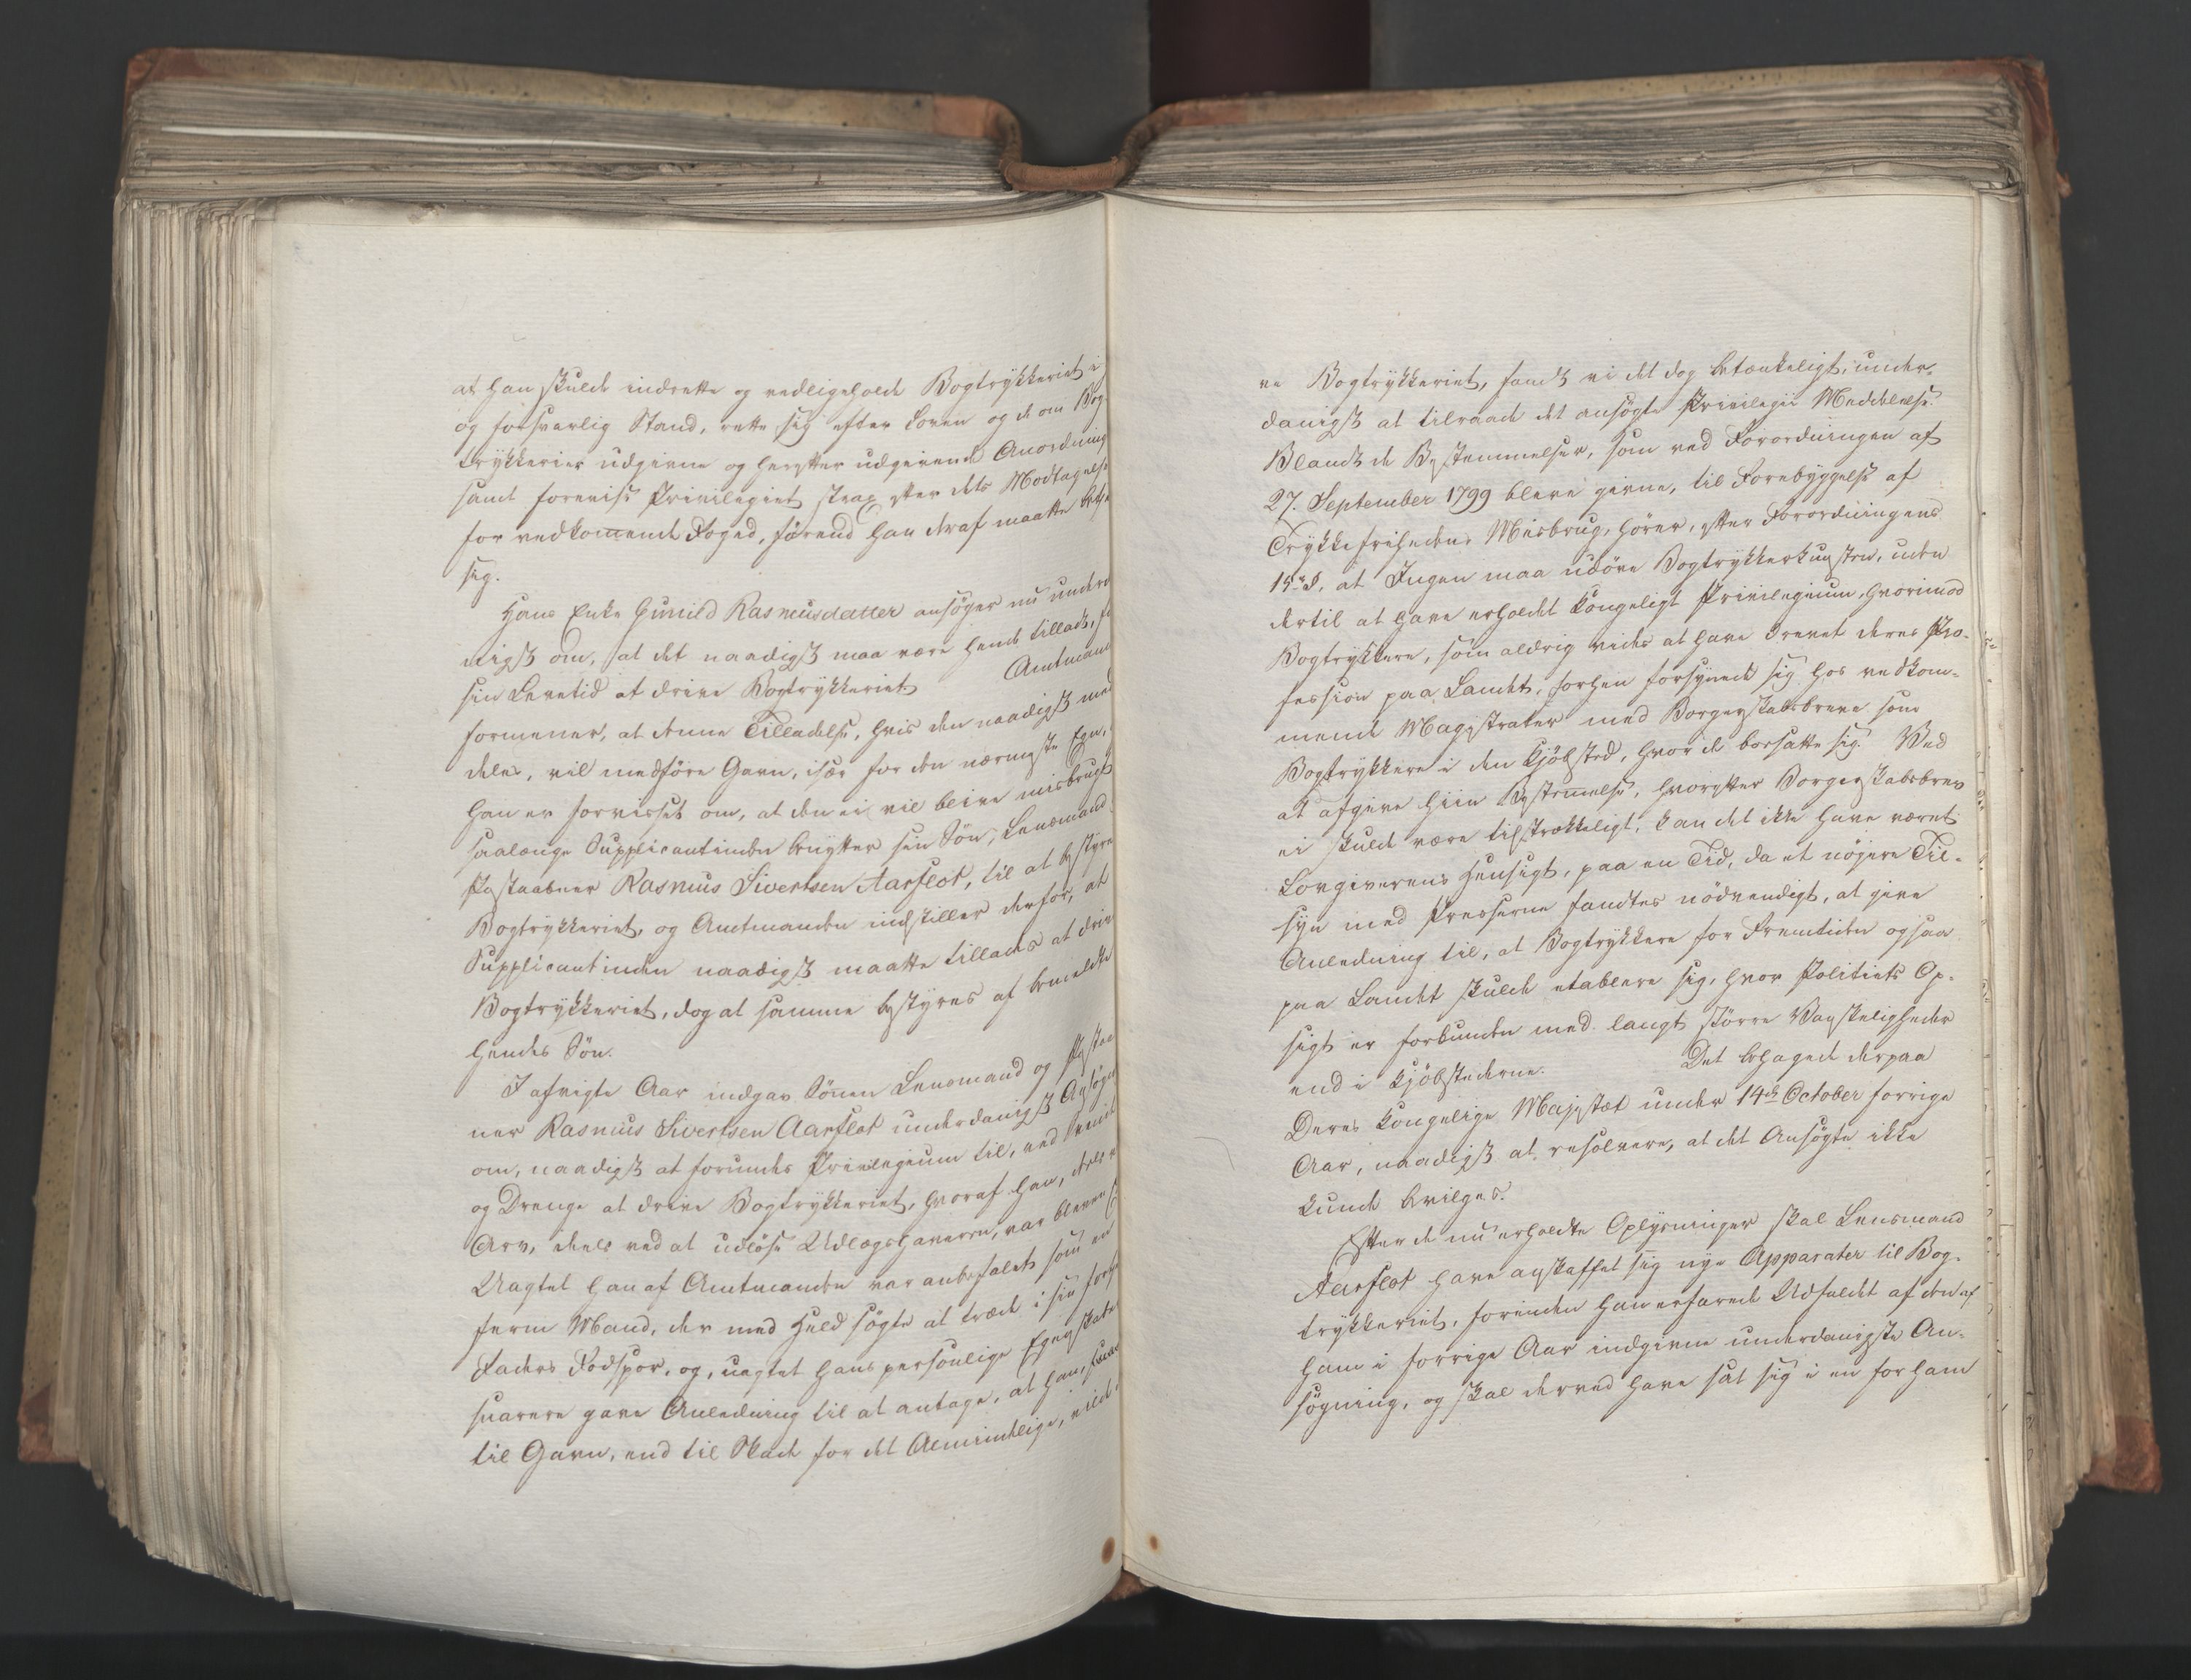 at han skulde indrette og vedligeholde Bogtrykkeriet i
og forsvarlig Stand, rette sig efter Loven og de om Bog-
trykkerier udgivne og herefter udgivende Anordning
samt forevise Privilegiet strax efter dets Modtagelse
for vedkommende Foged, førend han deraf maatte betje
sig.
Hans Enke Gunild Rasmusdatter ansøger nu underd
nigst om, at det naadigst maa være hende tilladt, fo
sin Levetid at drive Bogtrykkeriet. Amtmand
formener, at denne Tilladelse, hvis den naadigst med
deles, vil medføre Gavn, især for den nærmeste Egn,
han er forvisset om, at den ei vil blive misbrugt
saalænge Supplicantinden benytter sin Søn, Lensmand
Postaabner Rasmus Sivertsen Aarflot, til at bestyre
Bogtrykkeriet, og Amtmanden indstiller derfor, at
Supplicantinden naadigst maatte tillades at drive
Bogtrykkeriet, dog at samme bestyres af bemeldte
hendes Søn.
I afvigte Aar indgav Sønen Lensmand og Postaa
ner Rasmus Sivertsen Aarflot underdanigst Ansøgn
om, naadigst at forundes Privilegium til, ved Svende
og Drenge at drive Bogtrykkeriet, hvoraf han, dels v
Arv, dels ved at udløse Udlægshaverne, var bleven
Uagtet han af Amtmanden var anbefalet som en
ferm Mand, der med Held søgte at træde i sin
Faders Fodspor, og, uagtet hans personlige Egenskaber
snarere gave Anledning til at antage, at han, snar
til Gavn, end til Skade for det Almindelige, vilde
ve Bogtrykkeriet, fandt vi det dog betænkeligt, under-
danigst at tilraade det ansøgte Privilegii Meddelelse.
Blandt de Bestemmelser, som ved Forordningen af
27. September 1799 bleve givne, til Forebyggelse af
Trykkefrihedens Misbrug, hører, efter Forordningens
15de §, at Ingen maa udøve Bogtrykkerkunsten, uden
dertil at have erholdet Kongeligt Privilegium, hvorimod
Bogtrykkere, som aldrig vides at have drevet deres Pro-
fession paa Landet, forhen forsynede sig hos vedkom-
mende Magistrater med Borgerskabsbreve som
Bogtrykkere i den Kjøbsted, hvor de bosatte sig. Ved
at afgive hiin Bestemmelse, hvorefter Borgerskabsbrev
ei skulde være tilstrækkeligt, kan det ikke have været
Lovgiverens Hensigt, paa en Tid, da et nøjere Til-
syn med Presserne fandtes nødvendigt, at give
Anledning til, at Bogtrykkere for Fremtiden ogsaa
paa Landet skulde etablere sig, hvor Politiets Op-
sigt er forbunden med langt større Vanskeligheder
end i Kjøbstederne. Det behagede derpaa
Deres Kongelige Majestæt under 14de October forrige
Aar, naadigst at resolvere, at det Ansøgte ikke
kunde bevilges.
Efter de nu erholdte Oplysninger skal Lensmand
Aarflot have anskaffet sig nye Apparater til Bog-
trykkeriet, forinden han erfarede Udfaldet af den af
ham i forrige Aar indgivne underdanigste An-
søgning, og skal derved have sat sig i en for ham